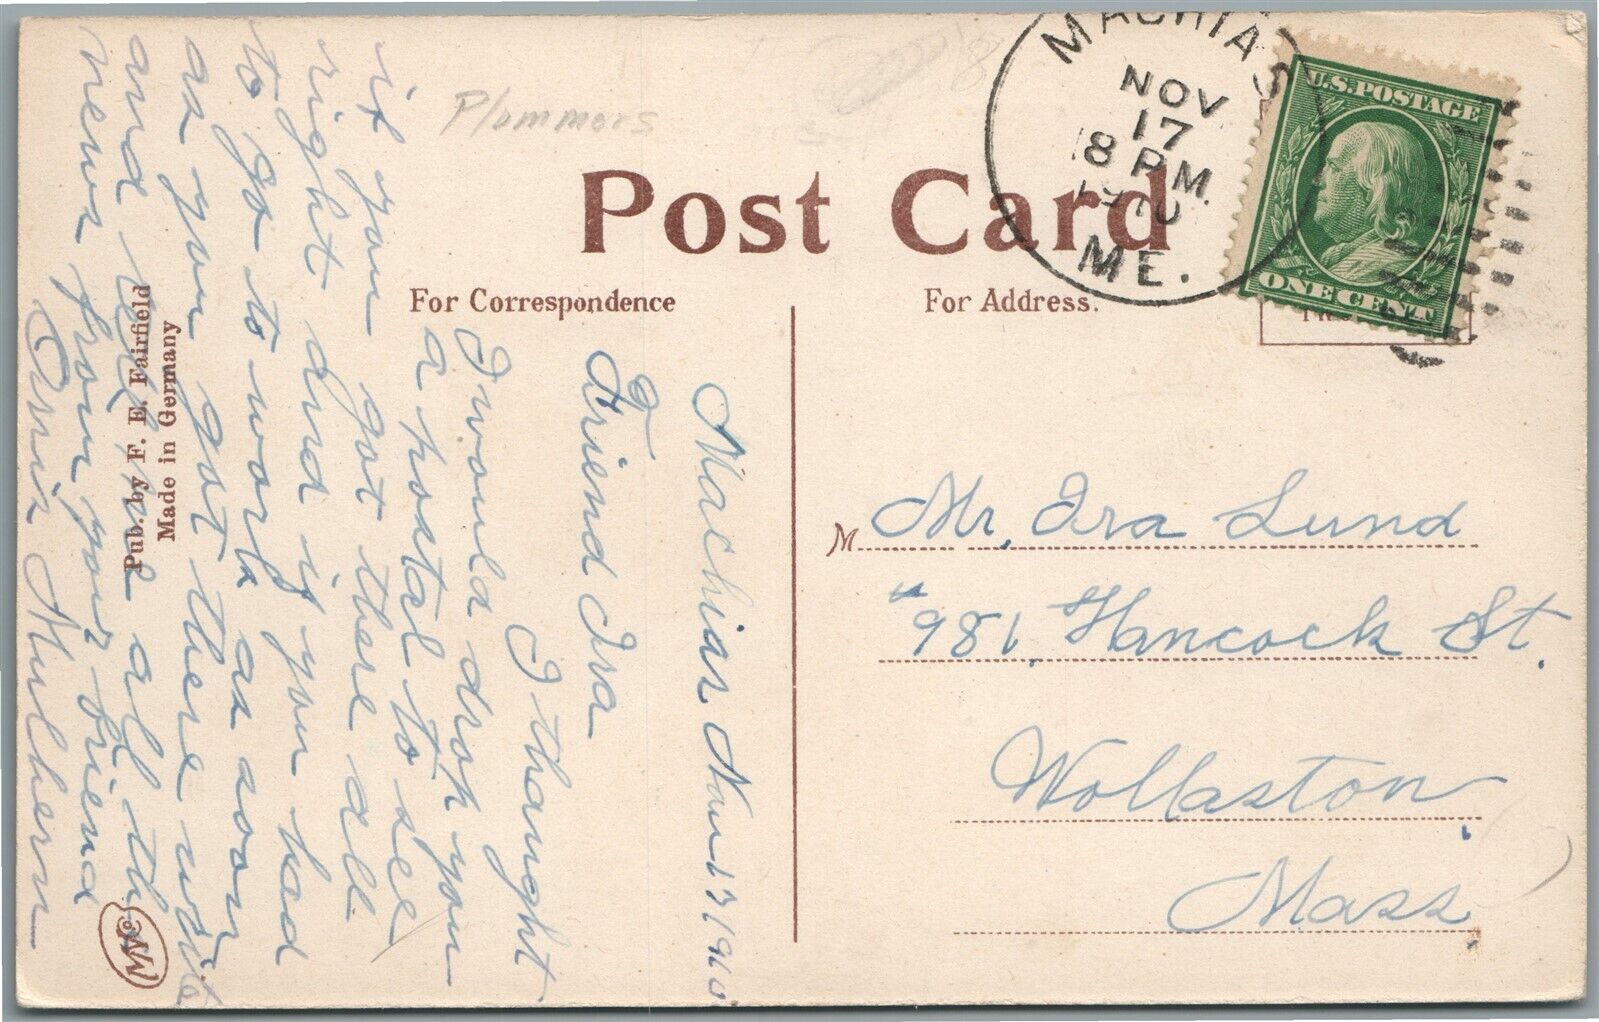 Plummers
MACHIAS
NOV
17
8 PM
1910
ME.
U.S. POSTAGE
ONE CENT
Post Card
For Correspondence
For Address.
Machias, Nov 17 1910
Friend Ira
I thaught
I would drop you
a postal to see
if you got there all
right and if you had
to go to work as soon
as you got there write
and tell me all the
news from your friend
Orrin Mulhern
Pub. by F. E. Fairfield
Made in Germany
M Mr. Ira Lund
"981, Hancock St.
Wollaston,
Mass